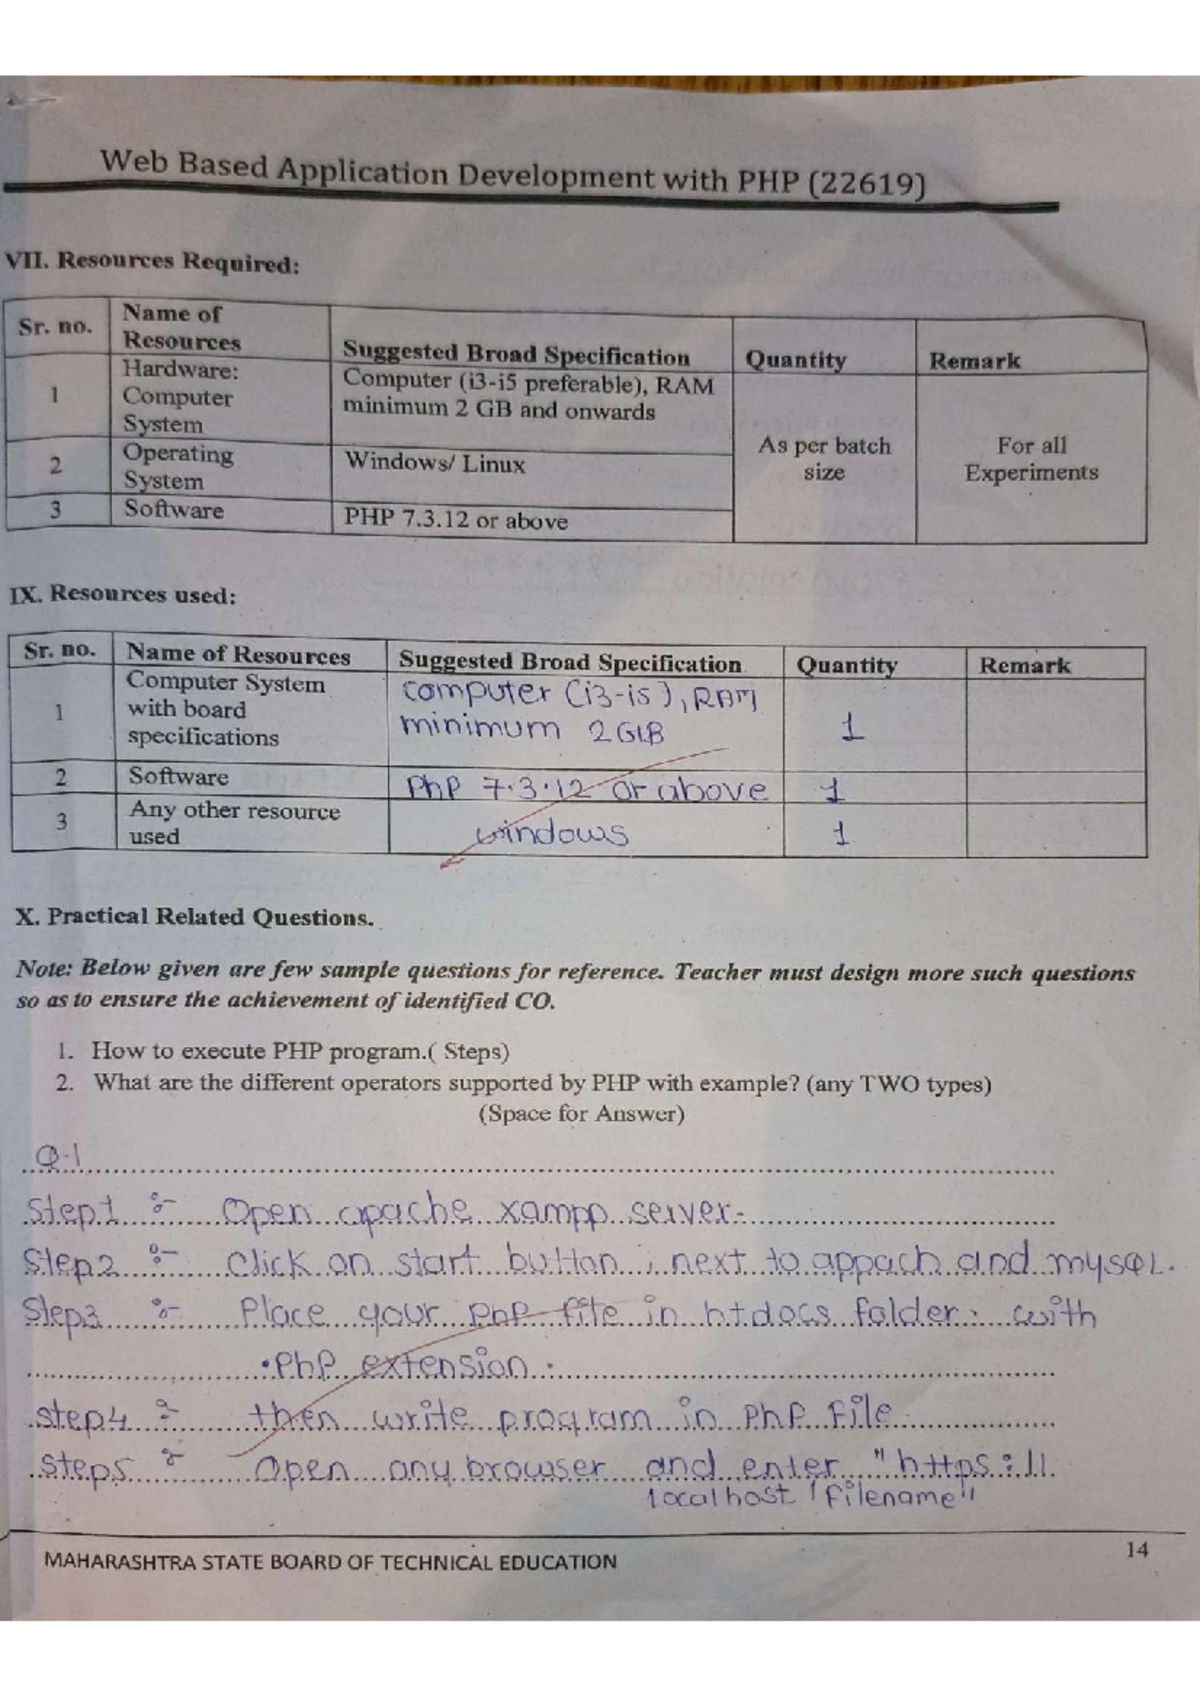 Web Based Application Development with PHP (22619)
VII. Resources Required:
Sr. no. Name of Resources Suggested Broad Specification Quantity Remark
1 Hardware: Computer System Computer (i3-i5 preferable), RAM minimum 2 GB and onwards As per batch size For all Experiments
2 Operating System Windows/ Linux
3 Software PHP 7.3.12 or above
IX. Resources used:
Sr. no. Name of Resources Suggested Broad Specification Quantity Remark
1 Computer System with board specifications computer (i3-i5), RAM minimum 2GB 1
2 Software PhP 7.3.12 or above 1
3 Any other resource used windows 1
X. Practical Related Questions.
Note: Below given are few sample questions for reference. Teacher must design more such questions
so as to ensure the achievement of identified CO.
1. How to execute PHP program.( Steps)
2. What are the different operators supported by PHP with example? (any TWO types)
(Space for Answer)
Q.1
Step1 :- Open apache xampp server.
Step2 :- Click on start button , next to appach and mysQL.
Step3 :- Place your PhP file in htdocs folder. with
.PhP extension.
step4 :- then write program in PhP File.
step5 :- Open any browser and enter "https://
localhost/filename"
MAHARASHTRA STATE BOARD OF TECHNICAL EDUCATION
14